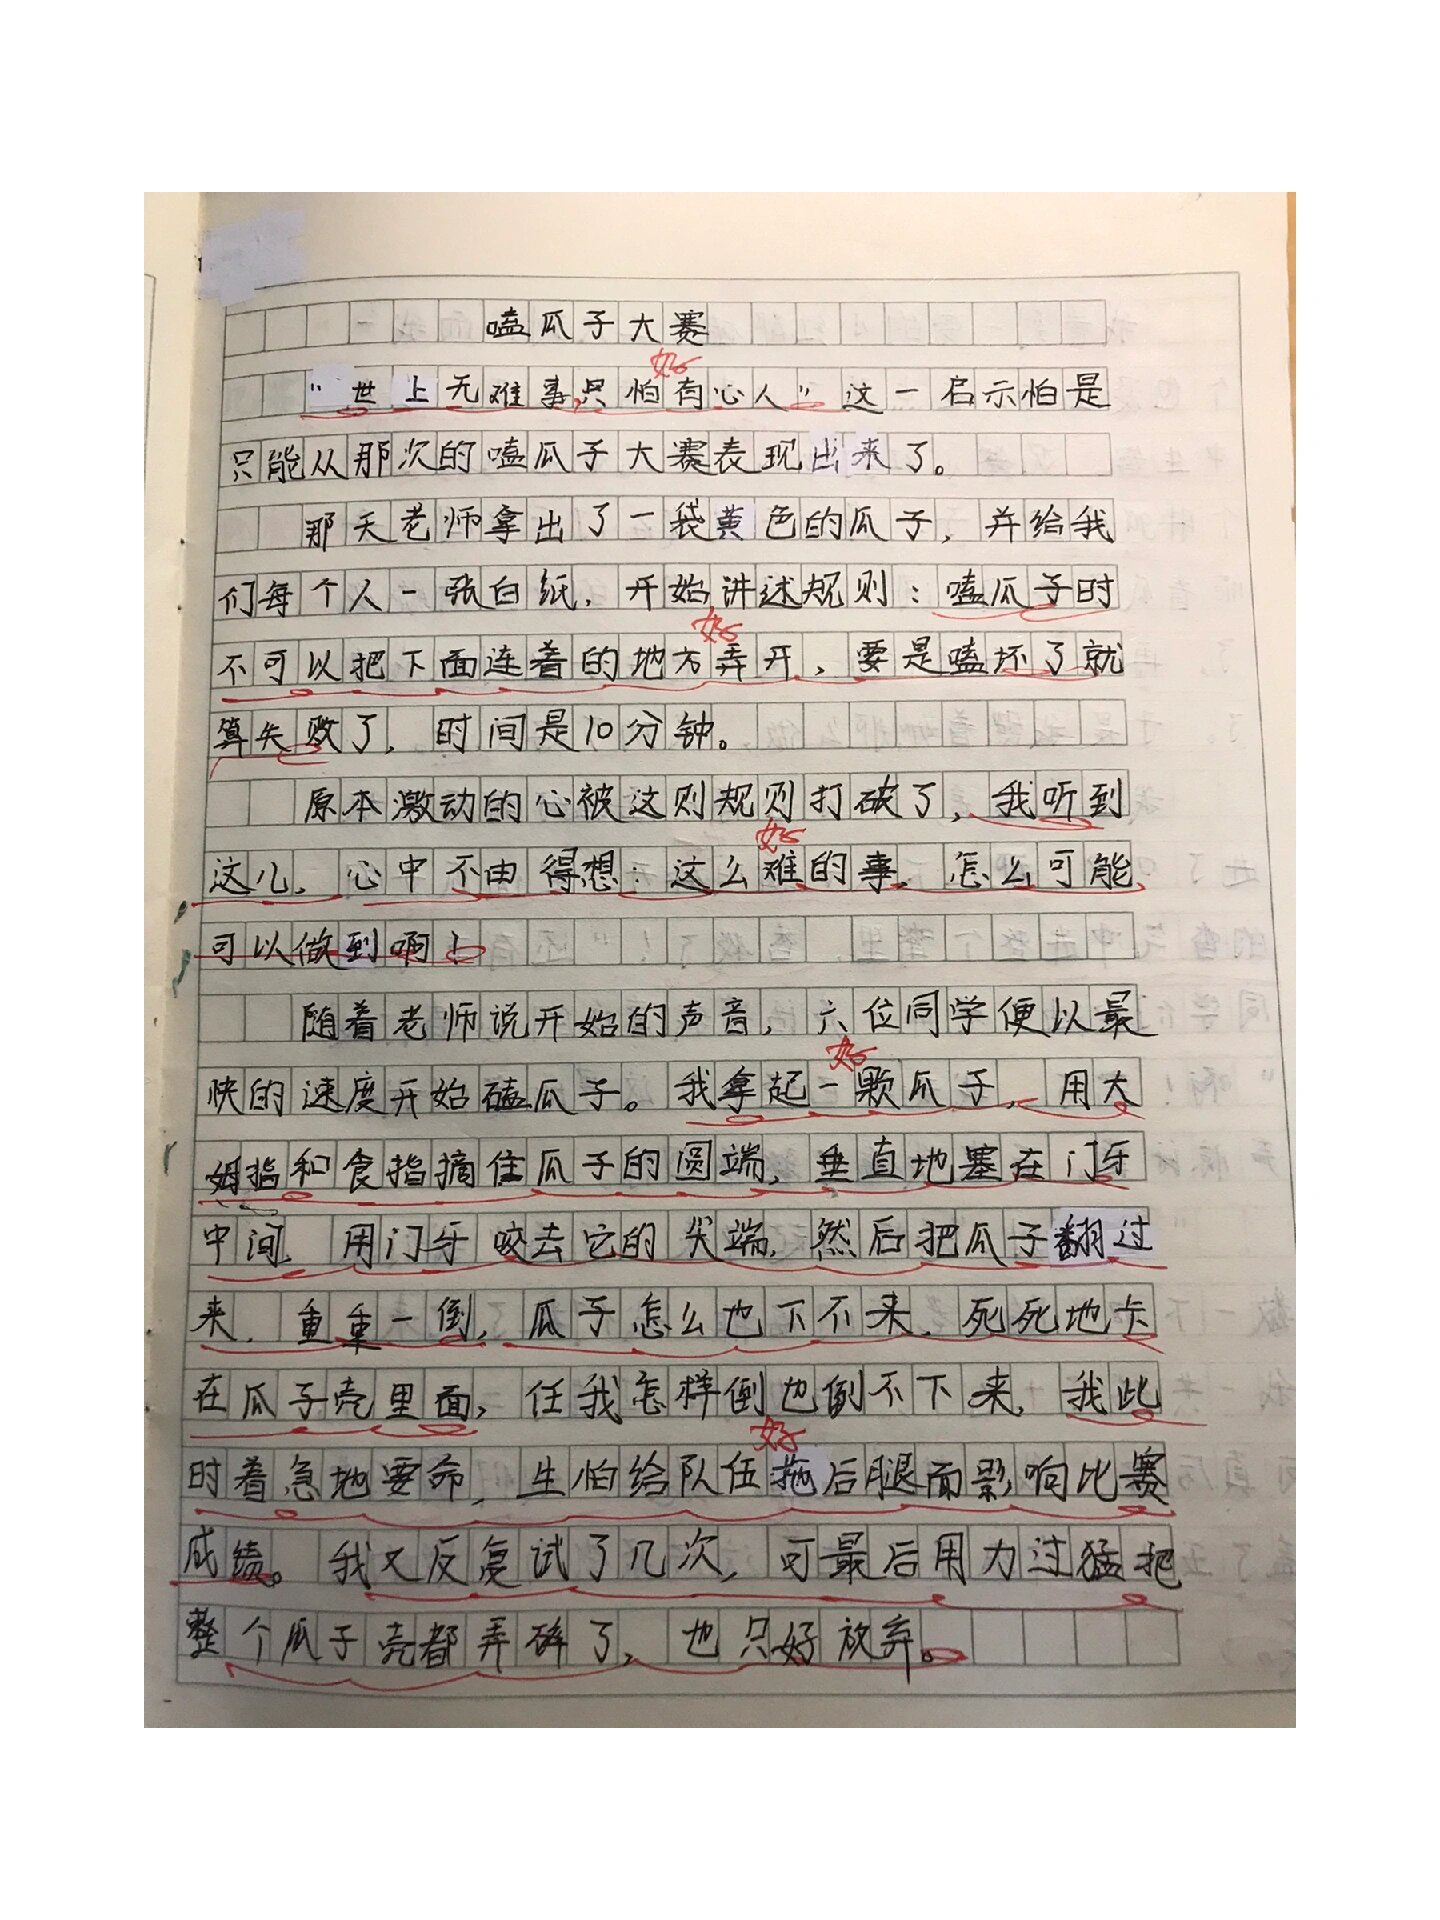 嗑瓜子大赛
好
“世上无难事,只怕有心人”这一启示怕是
只能从那次的嗑瓜子大赛表现出来了。
那天老师拿出了一袋黄色的瓜子，并给我
们每个人一张白纸，开始讲述规则：嗑瓜子时
好
不可以把下面连着的地方弄开，要是嗑坏了就
算失败了，时间是10分钟。
原本激动的心被这则规则打破了，我听到
好
这儿，心中不由得想：这么难的事，怎么可能
可以做到啊！
随着老师说开始的声音，六位同学便以最
好
快的速度开始磕瓜子。我拿起一颗瓜子，用大
姆指和食指摘住瓜子的圆端，垂直地塞在门牙
中间，用门牙咬去它的尖端，然后把瓜子翻过
来，重重一倒，瓜子怎么也下不来，死死地卡
在瓜子壳里面，任我怎样倒也倒不下来，我此
好
时着急地要命，生怕给队伍拖后腿而影响比赛
成绩。我又反复试了几次，可最后用力过猛把
整个瓜子壳都弄碎了，也只好放弃。